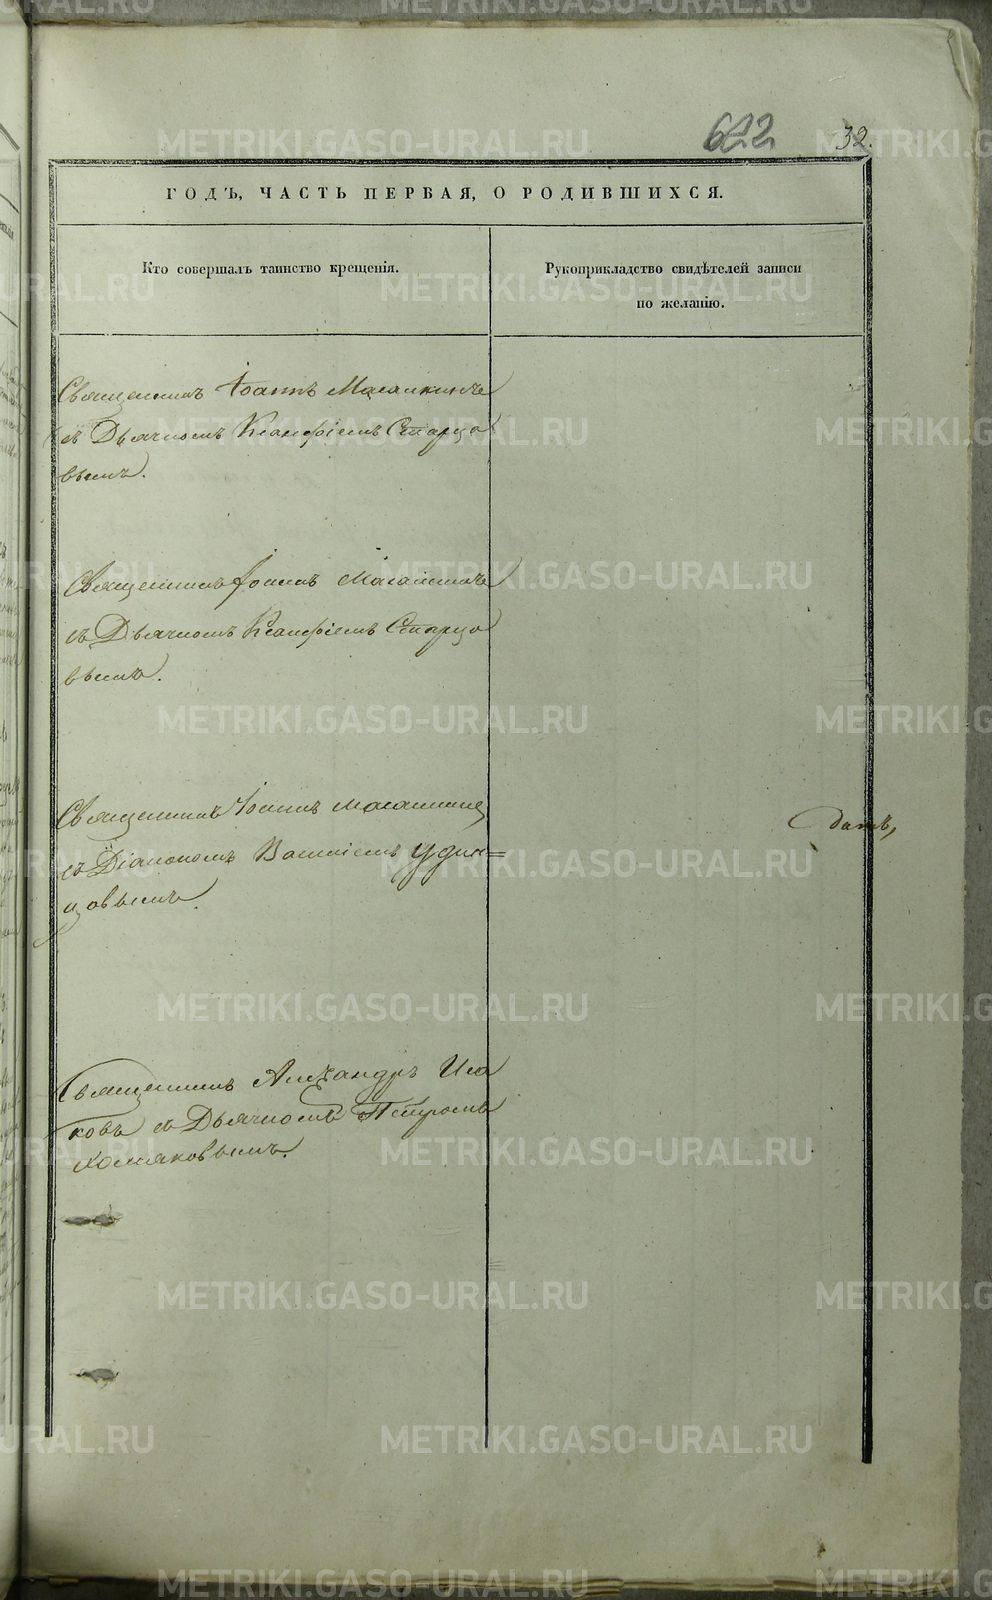 622 32.
ГОДЪ, ЧАСТЬ ПЕРВАЯ, О РОДИВШИХСЯ.
Кто совершалъ таинство крещенія.
Рукоприкладство свидѣтелей записи
по желанію.
Священникъ Іоаннъ
съ Дьячкомъ Ксанфіемъ Старцо
вымъ.
Священникъ Іоаннъ
съ Дьячкомъ Ксанфіемъ Старцо
вымъ.
Священникъ Іоаннъ
съ Діакономъ Василіемъ Удин=
цовымъ.
Священникъ Александръ Иса
ковъ съ Дьячкомъ Петромъ
Хомяковымъ.
METRIKI.GASO-URAL.RU